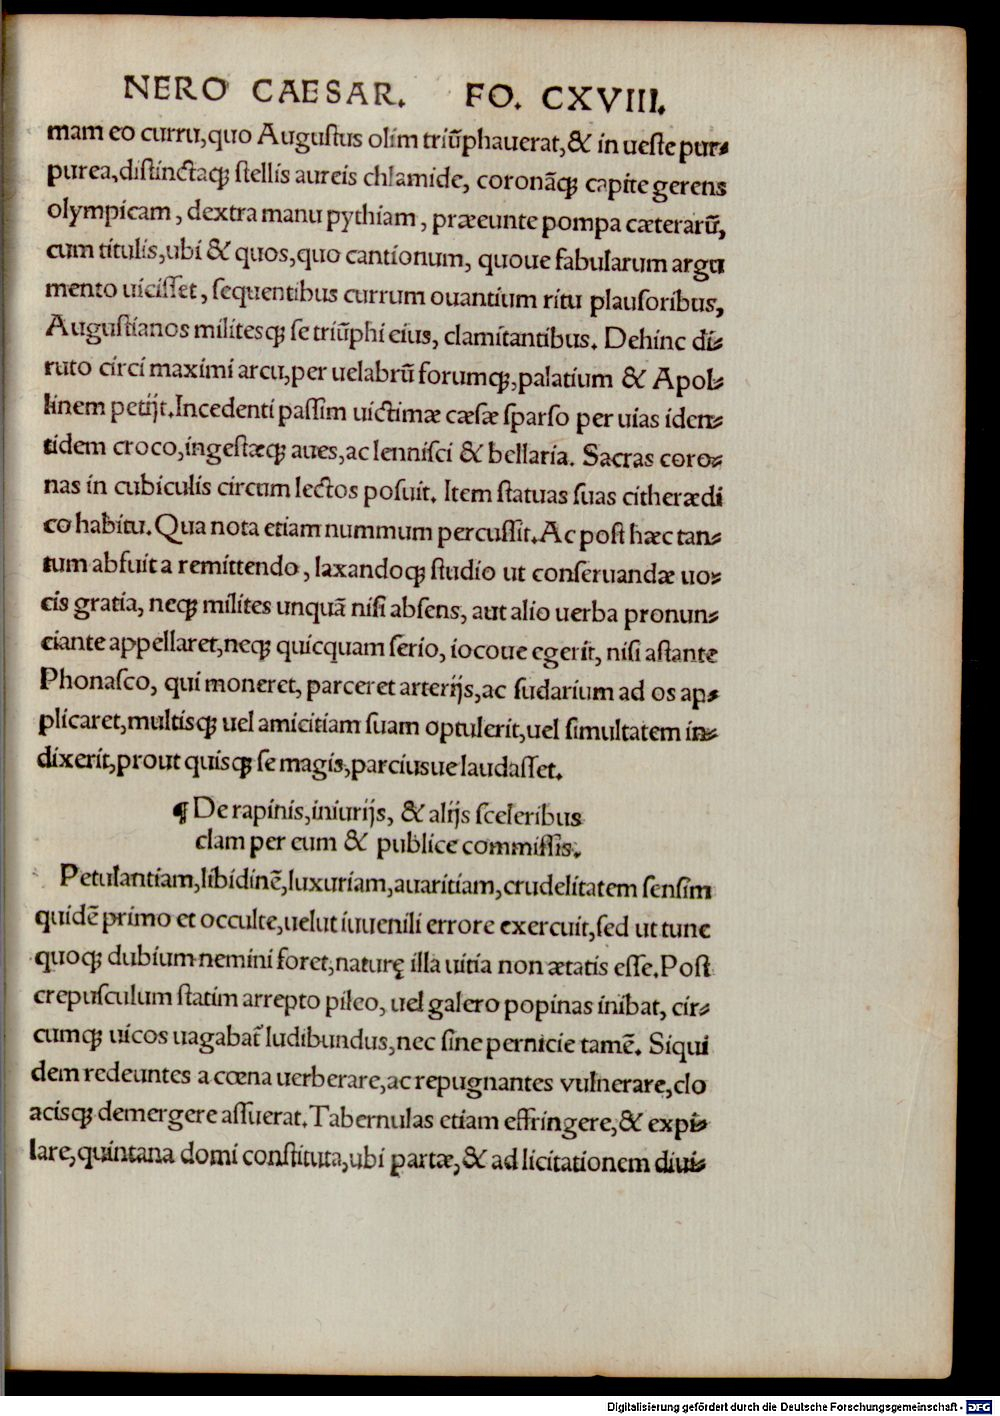 NERO CAESAR. FO. CXVIII.
mam eo curru,quo Augustus olim triũphauerat,& in ueste pur-
purea,distinctaqꝫ stellis aureis chlamide, coronãqꝫ capite gerens
olympicam, dextra manu pythiam, præeunte pompa cæterarũ,
cum titulis,ubi & quos,quo cantionum, quoue fabularum argu
mento uicisset, sequentibus currum ouantium ritu plausoribus,
Augustianos militesqꝫ se triũphi eius, clamitantibus. Dehinc di-
ruto circi maximi arcu,per uelabrũ forumqꝫ,palatium & Apol-
linem petijt.Incedenti passim uictimæ cæsæ sparso per uias iden-
tidem croco,ingestæqꝫ aues,ac lennisci & bellaria. Sacras coro-
nas in cubiculis circum lectos posuit. Item statuas suas citherædi
co habitu.Qua nota etiam nummum percussit.Ac post hæc tan-
tum abfuit a remittendo, laxandoqꝫ studio ut conseruandæ uo-
cis gratia, neqꝫ milites unquã nisi absens, aut alio uerba pronun-
ciante appellaret,neqꝫ quicquam serio, iocoue egerit, nisi astante
Phonasco, qui moneret, parceret arterijs,ac sudarium ad os ap-
plicaret,multisqꝫ uel amicitiam suam optulerit,uel simultatem in-
dixerit,prout quisqꝫ se magis,parciusue laudasset.
¶ De rapinis,iniurijs, & alijs sceleribus
clam per eum & publice commissis.
Petulantiam,libidinẽ,luxuriam,auaritiam,crudelitatem sensim
quidẽ primo et occulte,uelut iuuenili errore exercuit,sed ut tunc
quoqꝫ dubium nemini foret,naturę illa uitia non ætatis esse.Post
crepusculum statim arrepto pileo, uel galero popinas inibat, cir-
cumqꝫ uicos uagabat̃ ludibundus,nec sine pernicie tamẽ. Siqui
dem redeuntes a cœna uerberare,ac repugnantes vulnerare,clo
acisqꝫ demergere assuerat.Tabernulas etiam effringere,& expi-
lare,quintana domi constituta,ubi partæ,& ad licitationem diui-
Digitalisierung gefördert durch die Deutsche Forschungsgemeinschaft - DFG